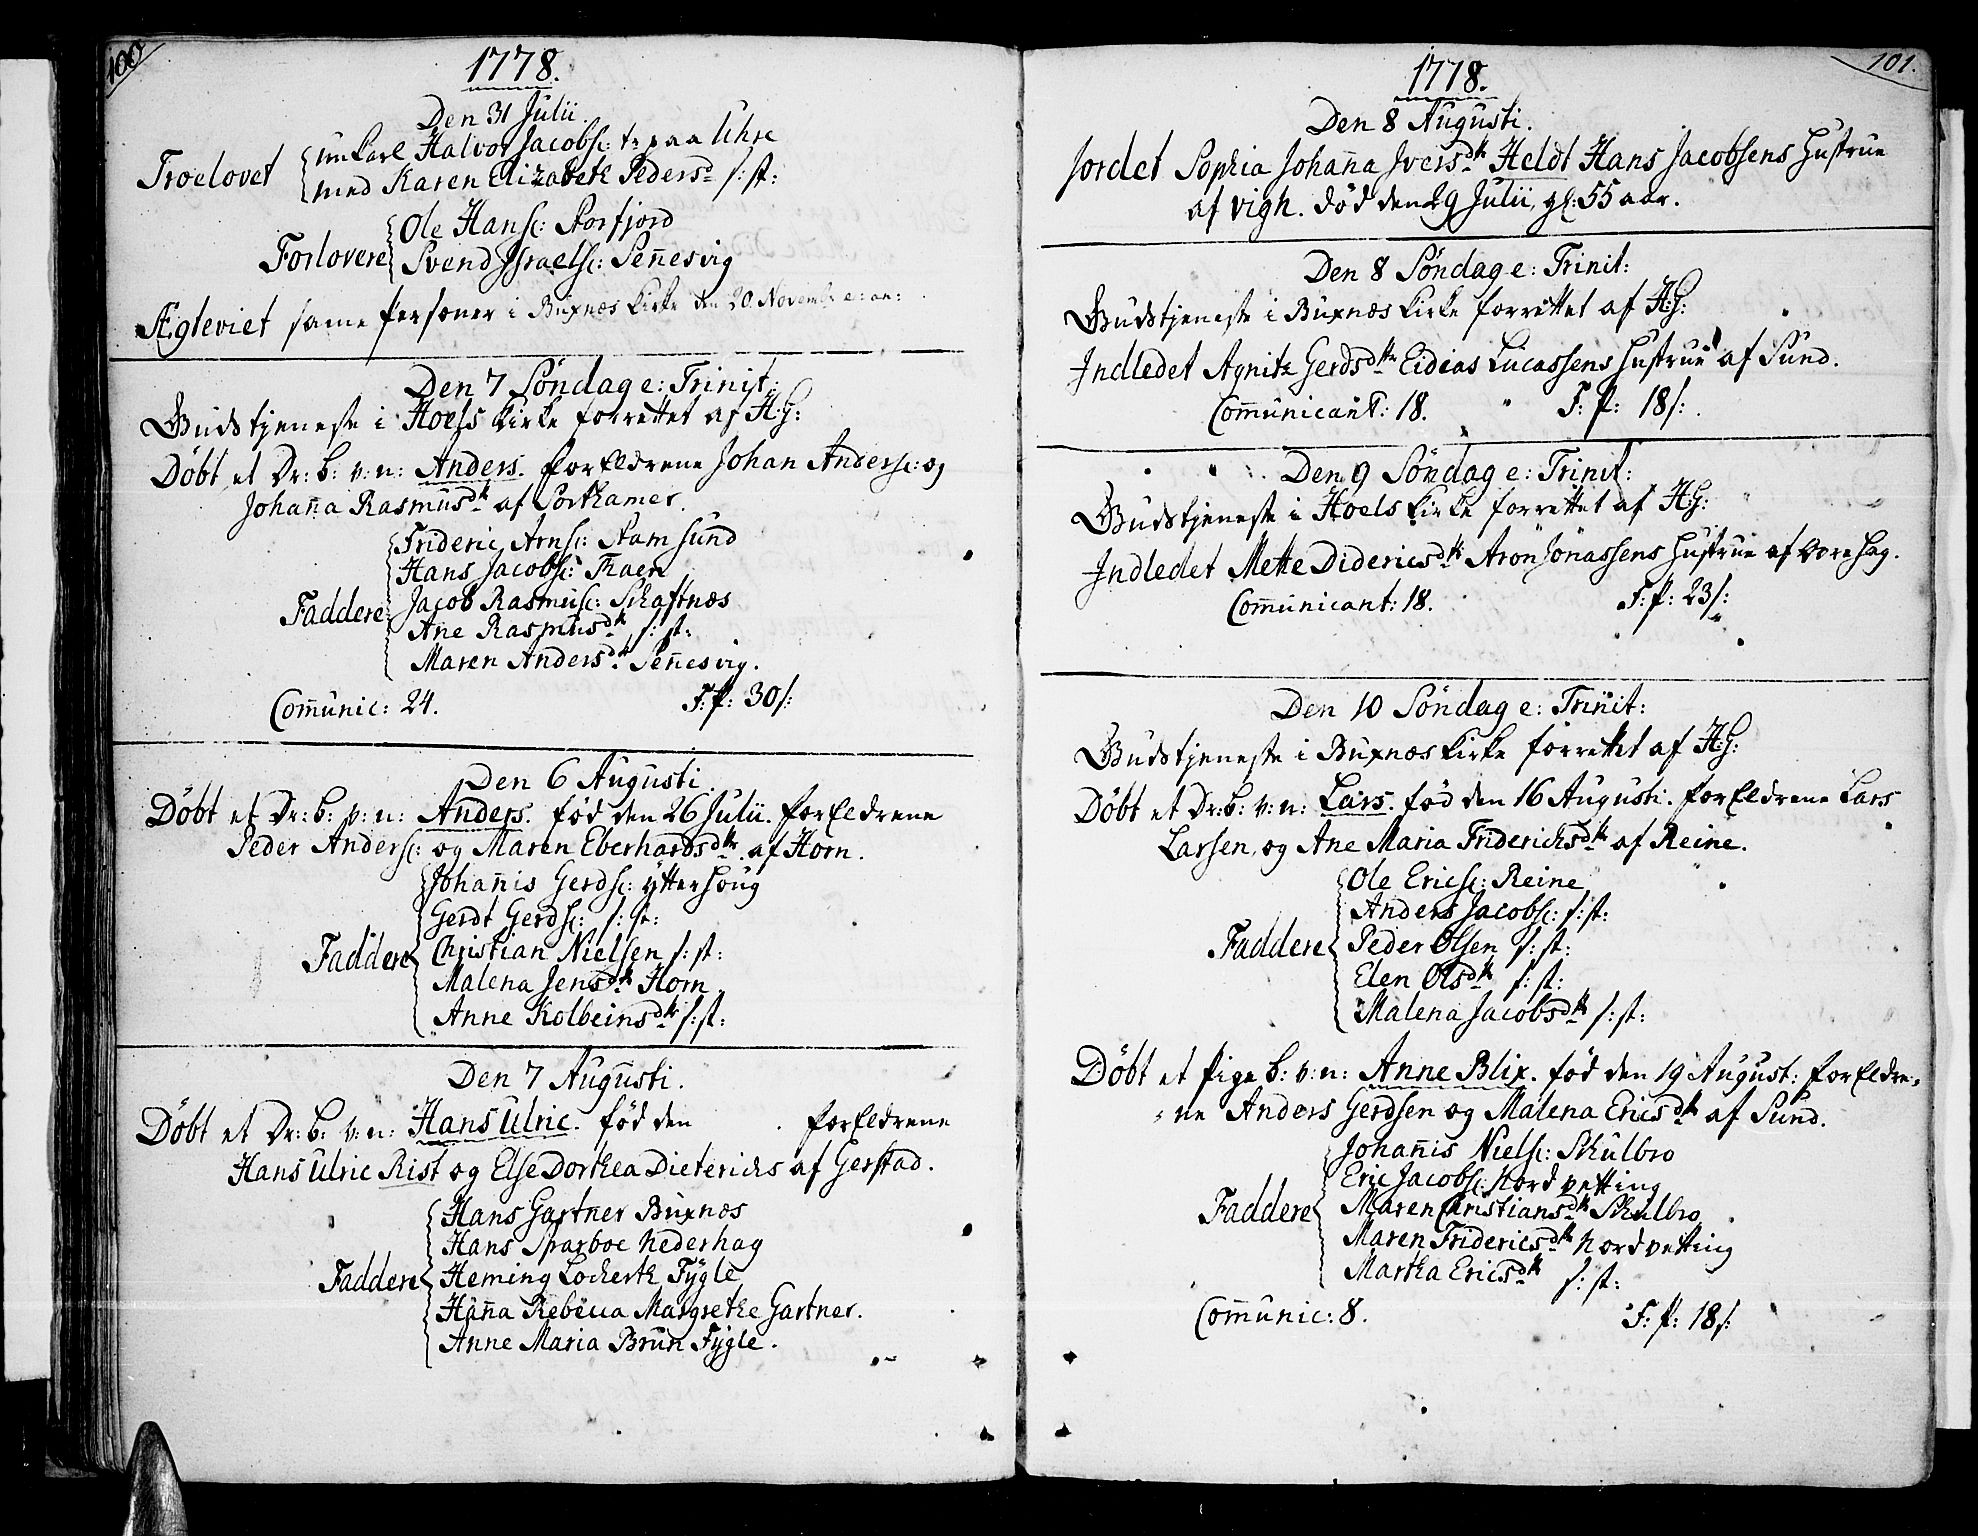 100
1778.
Den 31 Julii.
Troelovet
unkarl Halvor Jacobsc: tr: paa Uhre
med Karen Elizabeth Pedersd s: st:
Forlovere
Ole Hansc: Storfjord
Svend Jsraelsc: Sen̄esvig
Ægteviet sam̄e Personer i Buxnæs Kirke den 20. Novembr e: an:
Den 7 Söndag e: Trinit:
Gudstjeneste i Hoels Kirke forrettet af H: G:
Döbt et Dr: b: v: n: Anders. forEldrene Johan Andersc: og
Johan̄a Rasmusdtr af Sortkamer.
Faddere
Frideric Arnsc: Stamsund
Hans Jacobsc: Thaen
Jacob Rasmusc: Schaftnæs
Ane Rasmusdtr s: st:
Maren Andersdtr Sen̄esvig.
Com̄unic: 24. F: P: 30 s:
Den 6 Augusti.
Döbt et Dr: b: v: n: Anders. föd den 26 Julii. forEldrene
Peder Andersc: og Maren Eberhardsdtr af Horn.
Faddere
Johan̄is Gerdsc: ÿtterhoug
Gerdt Gerdsc: s: st:
Christian Nielsen s: st:
Malena Jensdtr Horn
Anne Kolbeinsdtr s: st:
Den 7 Augusti.
Döbt et Dr: b: v: n: Hans Ulric. föd den . forEldrene
Hans Ulric Rist og Else Dorthea Dieterichs af Gerstad.
Faddere
Hans Gartner Buxnæs
Hans Sparboe Nederhag
Heming Lockertk Fÿgle
Han̄a Rebecca Margrethe Gartner.
Anne Maria Brun Fÿgle.
101.
1778.
Den 8 Augusti.
Jordet Sophia Johan̄a Jversdtr Heldt Hans Jacobsens Hustrue
af Vigh. död den 29 Julii, gl: 55 aar.
Den 8 Söndag e: Trinit:
Gudstjeneste i Buxnæs Kirke forrettet af H: G:
Indledet Agnitz Gerdsdtr Eidias Lucassens Hustrue af Sund.
Com̄unicant: 18. F: P: 18 s:
Den 9 Söndag e: Trinit:
Gudstjeneste i Hoels Kirke forrettet af H: G:
Indledet Mette Didericsdtr Aron Jonassens Hustrue af Ovrehag.
Com̄unicant: 18. F: P: 23 s:
Den 10 Söndag e: Trinit:
Gudstjeneste i Buxnæs Kirke forrettet af H: G:
Döbt et Dr: b: v: n: Lars. föd den 16 Augusti. forEldrene Lars
Larsen, og Ane Maria Friderichsdtr af Reine.
Faddere
Ole Ericsc: Reine
Anders Jacobsc: s: st:
Peder Olsen s: st:
Elen Olsdtr s: st:
Malena Jacobsdtr s: st:
Döbt et Pige b: v: n: Anne Blix. föd den 19 August: forEldre-
-ne Anders Gerdsen og Malena Ericsdtr af Sund.
Faddere
Johan̄is Nielsc: Skulbro
Eric Jacobsc: Nordpetting
Maren Christiansdtr Skulbro
Maren Fridericsdtr Nordpetting
Martha Ericsdtr s: st:
Com̄unic: 8. F: P: 18 s: